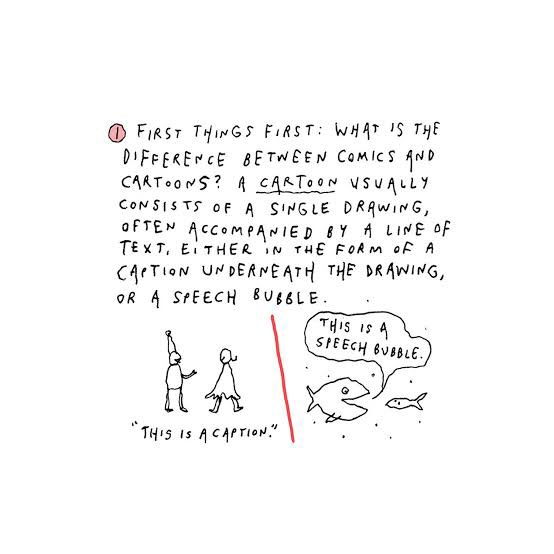 1 FIRST THINGS FIRST: WHAT IS THE
DIFFERENCE BETWEEN COMICS AND
CARTOONS? A CARTOON USUALLY
CONSISTS OF A SINGLE DRAWING,
OFTEN ACCOMPANIED BY A LINE OF
TEXT, EITHER IN THE FORM OF A
CAPTION UNDERNEATH THE DRAWING,
OR A SPEECH BUBBLE.
"THIS IS A CAPTION."
THIS IS A
SPEECH BUBBLE.